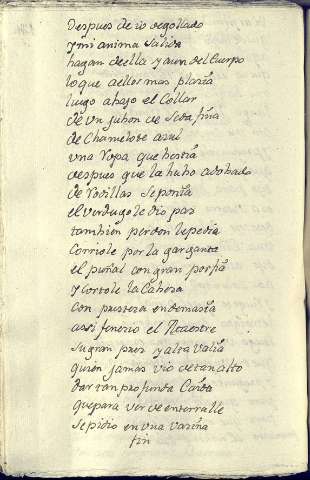 Despues de io degollado
y mi anima salida
hagan de ella y aun del Cuerpo
lo que a ellos mas plazia
luego abajo el Collar
de un jubon de Seda fina
de Chamelote azul
una Ropa que bestia
despues que la hubo adobado
de Rodillas se ponia
el verdugo le dio paz
tambien perdon le pedia
Corriole por la garganta
el puñal con gran porfia
y Cortole la Cabeza
Con presteza en demasia
assi fenecio el Maestre
su gran prez y alta valia
quien jamas vio de tan alto
dar tan profunda Caida
que para ver de enterralle
se pidio en una
fin